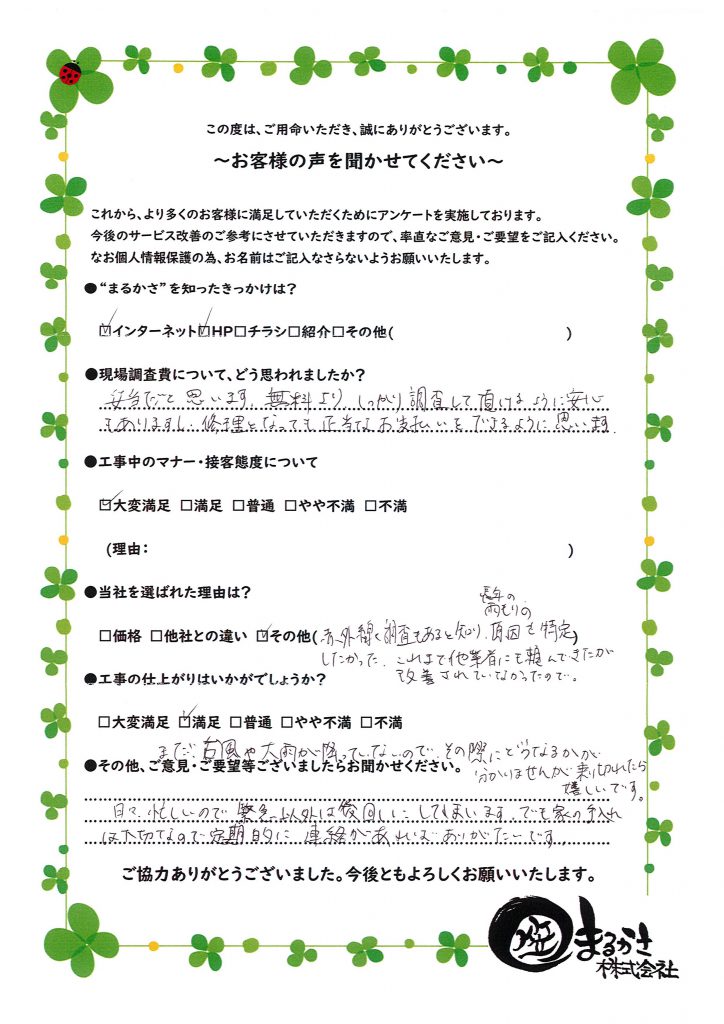 この度は、ご用命いただき、誠にありがとうございます。
～お客様の声を聞かせてください～
これから、より多くのお客様に満足していただくためにアンケートを実施しております。
今後のサービス改善のご参考にさせていただきますので、率直なご意見・ご要望をご記入ください。
なお個人情報保護の為、お名前はご記入なさらないようお願いいたします。
●“まるかさ”を知ったきっかけは？
☑インターネット☑HP□チラシ□紹介□その他( )
●現場調査費について、どう思われましたか？
妥当だと思います。無料より、しっかり調査して頂けるように安心
もありますし、修理となっても正当なお支払いをできるように思います。
●工事中のマナー・接客態度について
☑大変満足 □満足 □普通 □やや不満 □不満
(理由： )
●当社を選ばれた理由は？
長年の
雨もりの
□価格 □他社との違い ☑その他(赤外線で調査もあると知り、原因を特定)
したかった。これまで他業者にも頼んできたが
改善されていなかったので。
●工事の仕上がりはいかがでしょうか？
□大変満足 ☑満足 □普通 □やや不満 □不満
まだ、台風や大雨が降っていないので、その際にどうなるかが
分かりませんが乗り切れたら
嬉しいです。
●その他、ご意見・ご要望等ございましたらお聞かせください。
日々、忙しいので緊急以外は後回しにしてしまいます。でも家の手入れ
は大切なので定期的に連絡があればありがたいです。
ご協力ありがとうございました。今後ともよろしくお願いいたします。
まるかさ
株式会社